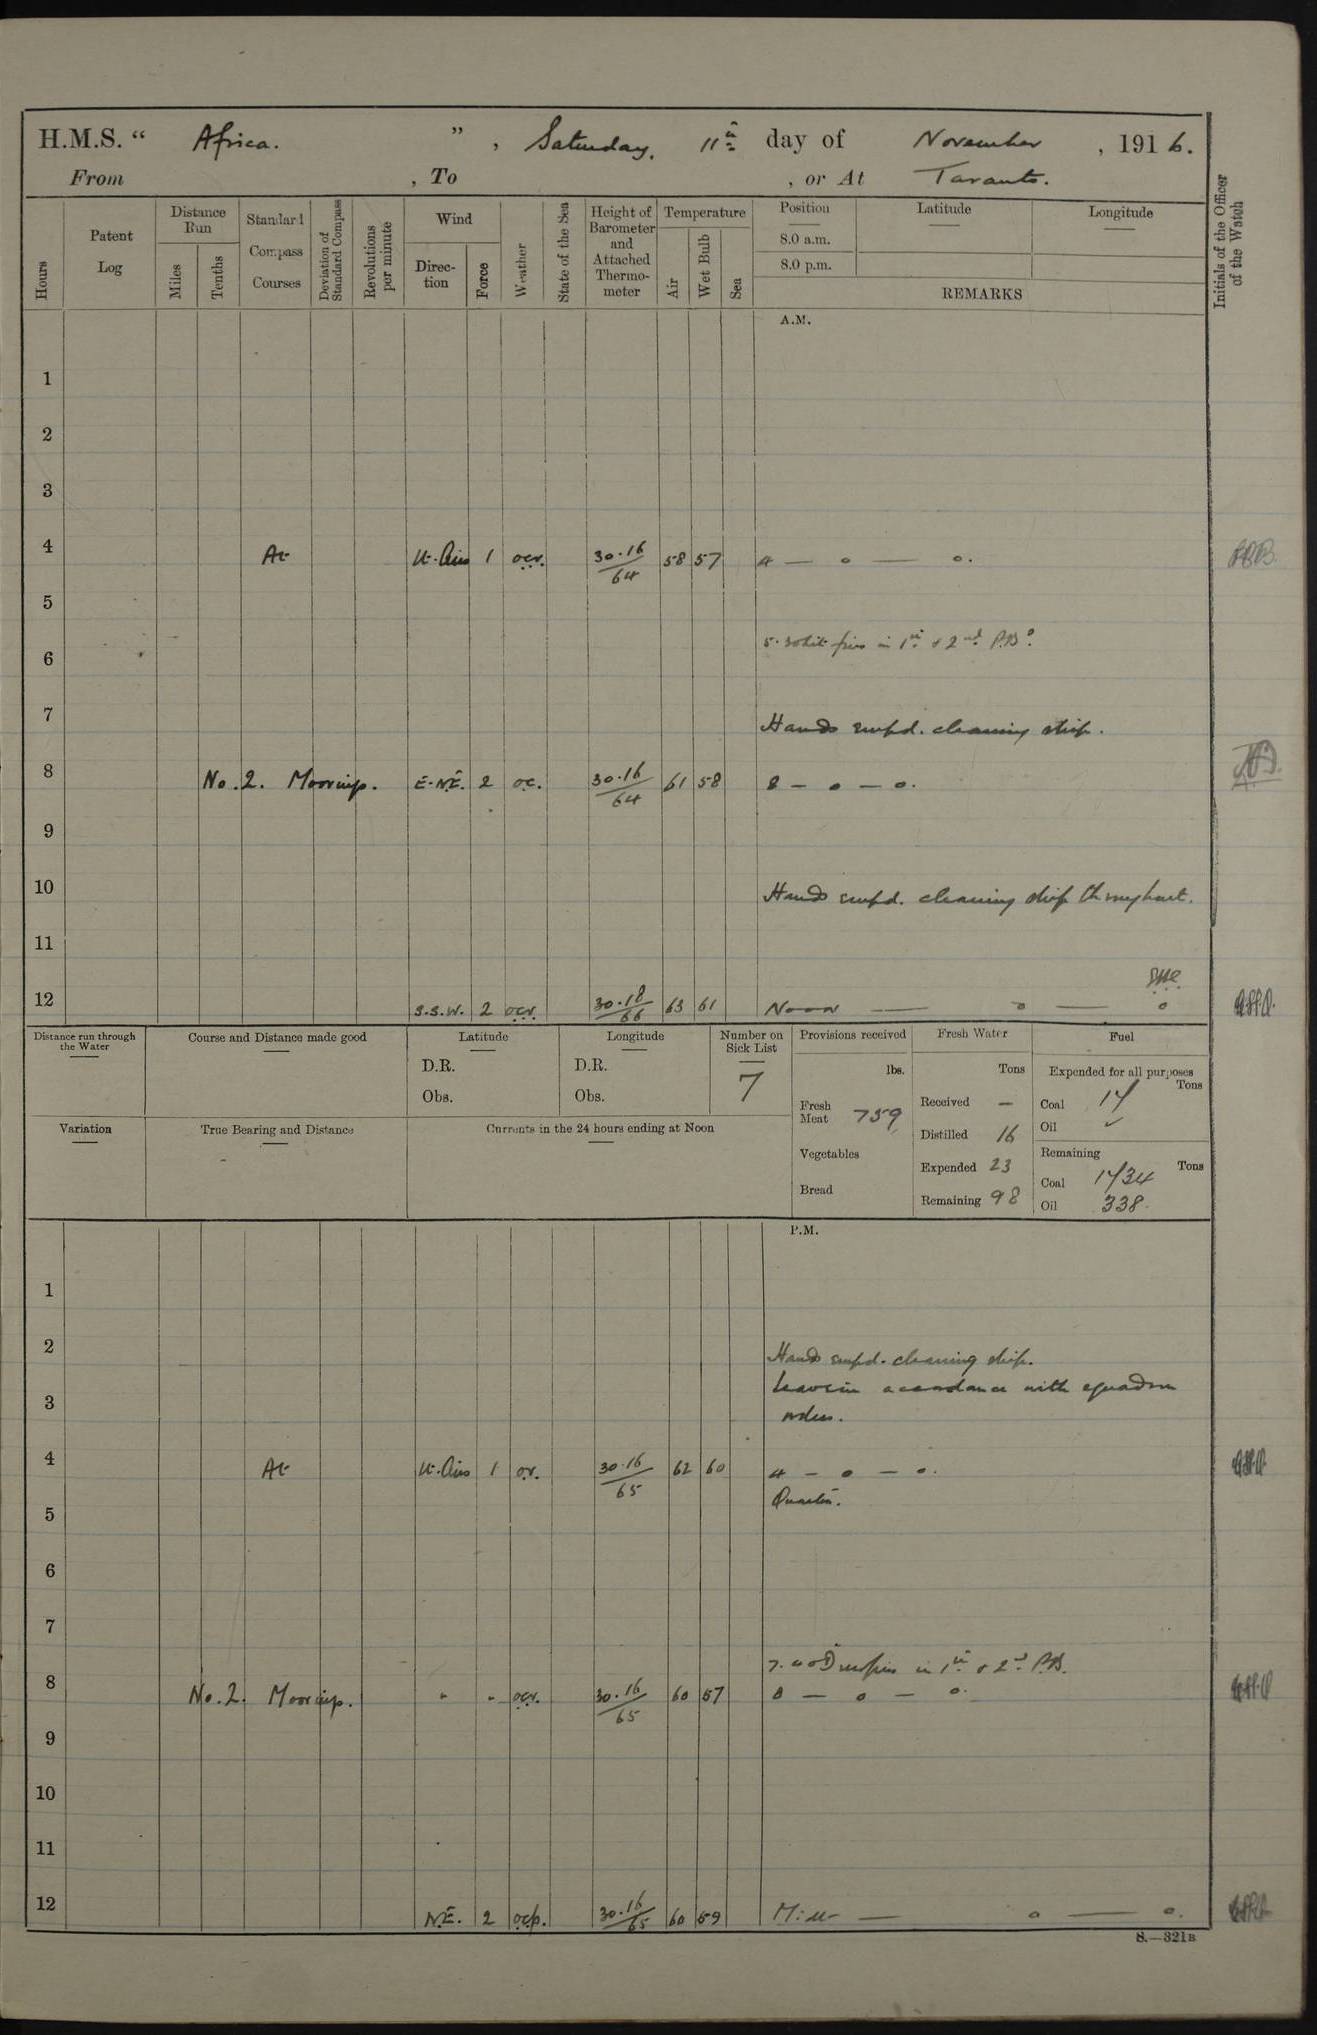 H.M.S. “ Africa. ”, Saturday, 11th day of November, 1916.
From , To , or At Taranto.
Hours
Patent Log
Distance Run
Miles
Tenths
Standard Compass Courses
Deviation of Standard Compass
Revolutions per minute
Wind
Direction
Force
Weather
State of the Sea
Height of Barometer and Attached Thermometer
Temperature
Air
Wet Bulb
Sea
Position
8.0 a.m.
8.0 p.m.
Latitude
Longitude
REMARKS
Initials of the Officer of the Watch
A.M.
1
2
3
4 At Lt. Airs 1 ocr. 30.16/64 58 57 4 — o — o.
5
5.30 Lit fires in 1st & 2nd P.Bs.
6
7
Hands empd. cleaning ship.
8 No. 2. Moorings. E.NE. 2 oc. 30.16/64 61 58 8 — o — o.
9
10
Hands empd. cleaning ship throughout.
11
12 S.S.W. 2 ocr. 30.18/66 63 61 Noon — o — o
Distance run through the Water
Course and Distance made good
Latitude
D.R.
Obs.
Longitude
D.R.
Obs.
Number on Sick List
7
Provisions received
lbs.
Fresh Meat 759
Vegetables
Bread
Fresh Water
Tons
Received —
Distilled 16
Expended 23
Remaining 98
Fuel
Expended for all purposes
Tons
Coal 14
Oil ✓
Remaining
Tons
Coal 1434
Oil 338.
Variation
True Bearing and Distance
Currents in the 24 hours ending at Noon
P.M.
1
2
Hands empd. cleaning ship.
Leave in accordance with squadron
3
orders.
4 At Lt. Airs 1 or. 30.16/65 62 60 4 — o — o.
Quarters.
5
6
7
7.40 Drew fires in 1st & 2nd P.B.
8 No. 2. Moorings. " " ocr. 30.16/65 60 57 8 — o — o.
9
10
11
12 N.E. 2 ocp. 30.16/65 60 59 Midt. — o — o.
S.—321B